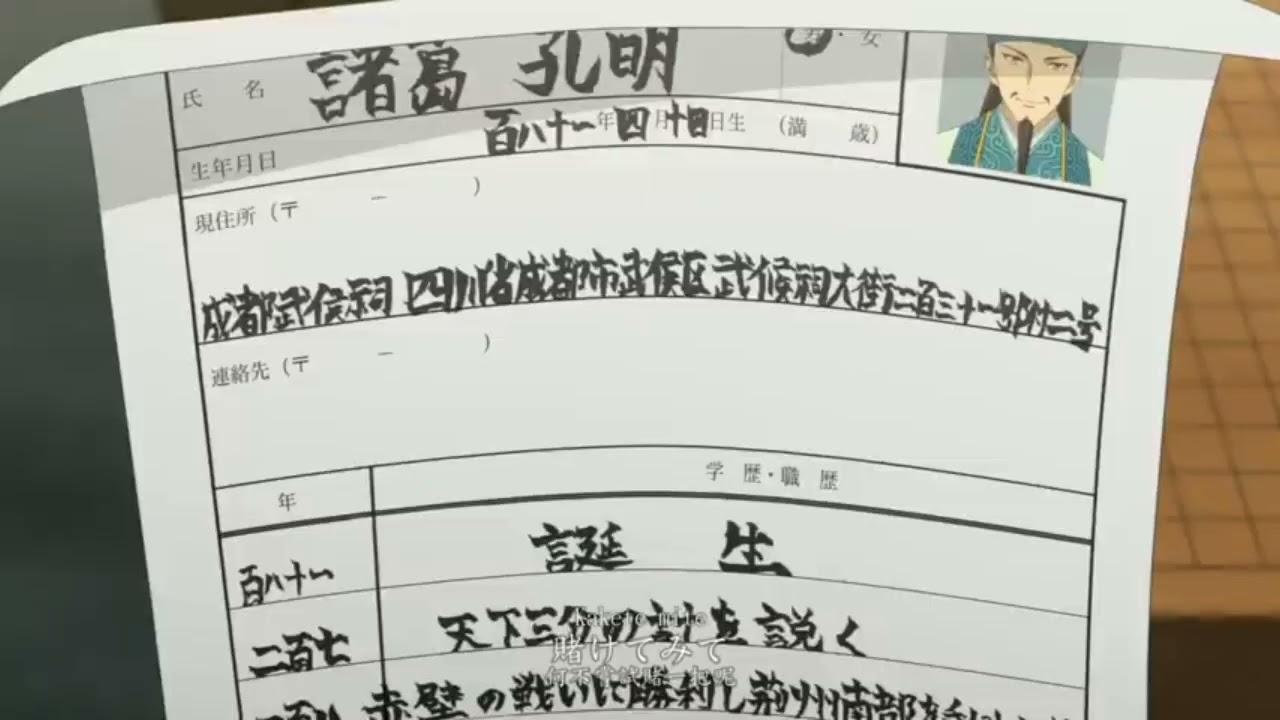 氏 名 諸葛 孔明 男・女
生年月日 百八十一年 四月 十四日生 (満 歳)
現住所 (〒 － )
成都武侯祠 四川省成都市武侯区武候祠大街二百三十一号附二号
連絡先 (〒 － )
年 学 歴・職 歴
百八十一 誕 生
二百七 天下三分の計を説く
赤壁の戦いに勝利し荊州南部を
Kakete mite
賭けてみて
何不尝试赌一把呢